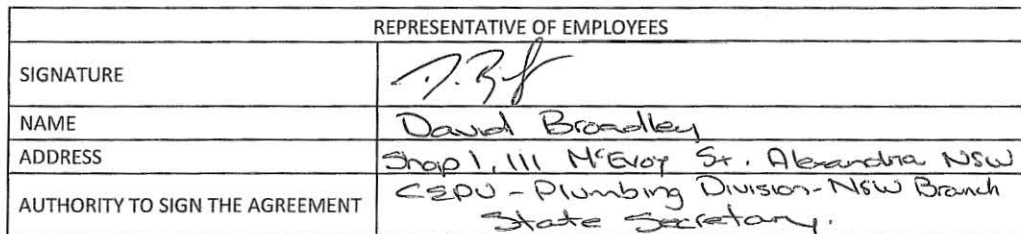 REPRESENTATIVE OF EMPLOYEES
SIGNATURE
NAME David Broadley
ADDRESS Shop 1, 111 McEvoy St. Alexandria NSW
AUTHORITY TO SIGN THE AGREEMENT CEPU - Plumbing Division - NSW Branch
State Secretary.